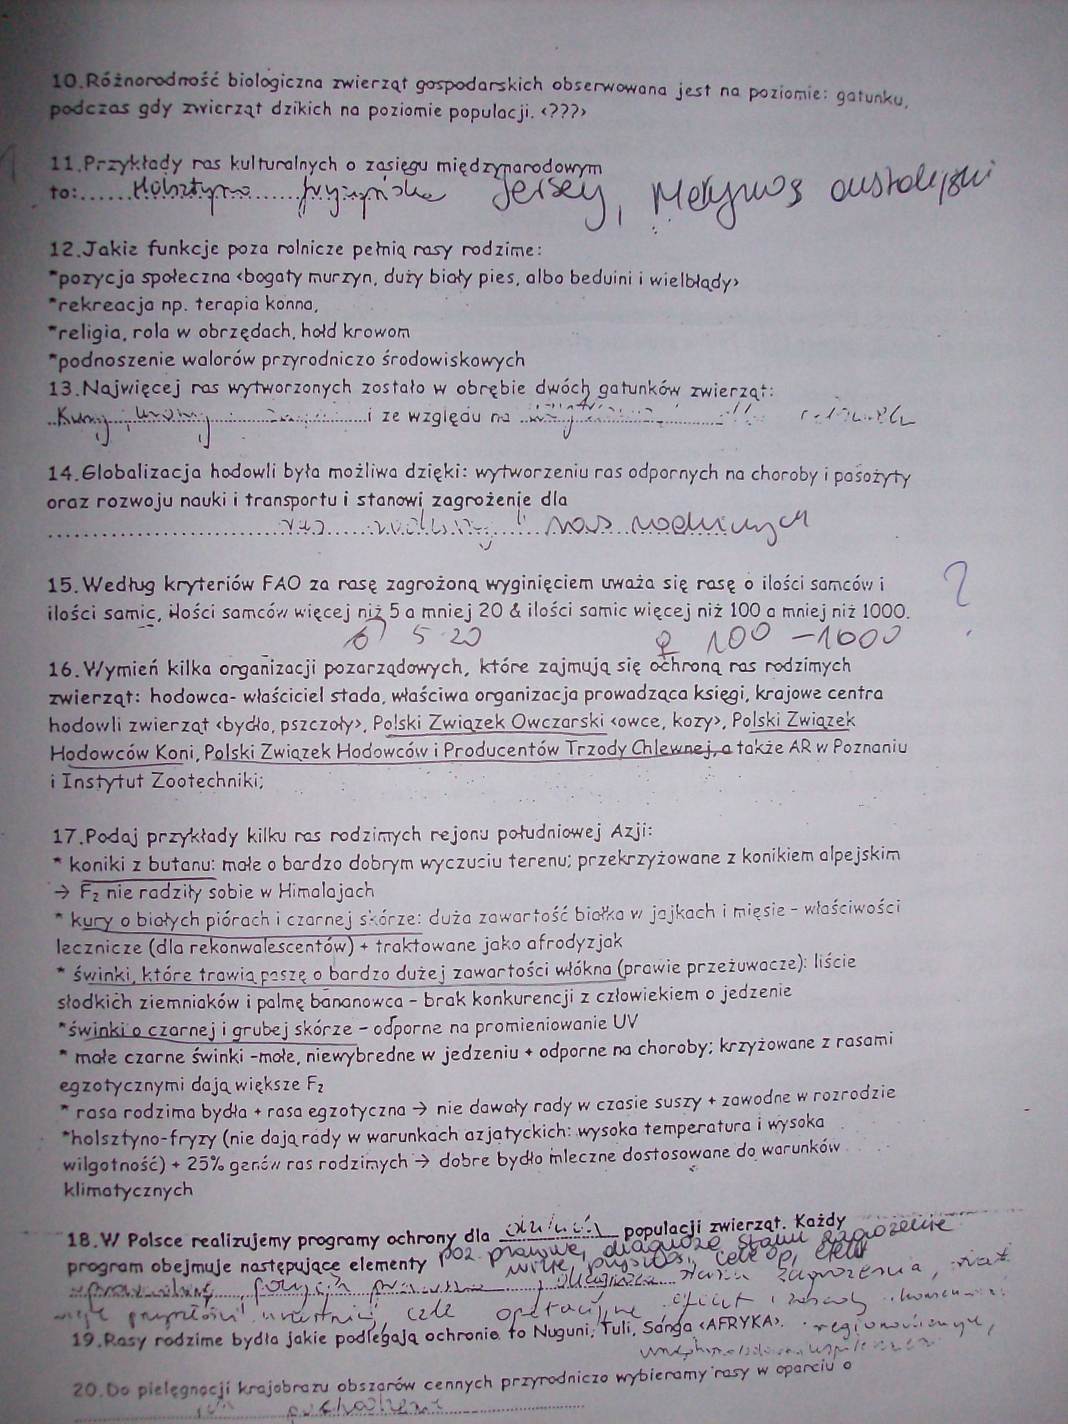 10.Różnorodność biologiczna zwierząt gospodarskich obserwowana jest na poziomie: gatunku,
podczas gdy zwierząt dzikich na poziomie populacji. <???>
11.Przykłady ras kulturalnych o zasięgu międzynarodowym
to:...... Jersey, Merynos australijski
12.Jakie funkcje poza rolnicze pełnią rasy rodzime:
*pozycja społeczna <bogaty murzyn, duży biały pies, albo beduini i wielbłądy>
*rekreacja np. terapia konna,
*religia, rola w obrzędach, hołd krowom
*podnoszenie walorów przyrodniczo środowiskowych
13.Najwięcej ras wytworzonych zostało w obrębie dwóch gatunków zwierząt:
i ze względu na
14.Globalizacja hodowli była możliwa dzięki: wytworzeniu ras odpornych na choroby i pasożyty
oraz rozwoju nauki i transportu i stanowi zagrożenie dla
ras rodzimych
15.Według kryteriów FAO za rasę zagrożoną wyginięciem uważa się rasę o ilości samców i ?
ilości samic, ilości samców więcej niż 5 a mniej 20 & ilości samic więcej niż 100 a mniej niż 1000.
5 20 ♀ 100 - 1000
16.Wymień kilka organizacji pozarządowych, które zajmują się ochroną ras rodzimych
zwierząt: hodowca- właściciel stada, właściwa organizacja prowadząca księgi, krajowe centra
hodowli zwierząt <bydło, pszczoły>, Polski Związek Owczarski <owce, kozy>, Polski Związek
Hodowców Koni, Polski Związek Hodowców i Producentów Trzody Chlewnej, a także AR w Poznaniu
i Instytut Zootechniki;
17.Podaj przykłady kilku ras rodzimych rejonu południowej Azji:
* koniki z butanu: małe o bardzo dobrym wyczuciu terenu; przekrzyżowane z konikiem alpejskim
→ F₂ nie radziły sobie w Himalajach
* kury o białych piórach i czarnej skórze: duża zawartość białka w jajkach i mięsie - właściwości
lecznicze (dla rekonwalescentów) + traktowane jako afrodyzjak
* świnki, które trawią paszę o bardzo dużej zawartości włókna (prawie przeżuwacze): liście
słodkich ziemniaków i palmę bananowca - brak konkurencji z człowiekiem o jedzenie
*świnki o czarnej i grubej skórze - odporne na promieniowanie UV
* małe czarne świnki -małe, niewybredne w jedzeniu + odporne na choroby; krzyżowane z rasami
egzotycznymi dają większe F₂
* rasa rodzima bydła + rasa egzotyczna → nie dawały rady w czasie suszy + zawodne w rozrodzie
*holsztyno-fryzy (nie dają rady w warunkach azjatyckich: wysoka temperatura i wysoka
wilgotność) + 25% genów ras rodzimych → dobre bydło mleczne dostosowane do warunków
klimatycznych
18.W Polsce realizujemy programy ochrony dla populacji zwierząt. Każdy
program obejmuje następujące elementy
19.Rasy rodzime bydła jakie podlegają ochronie to Nuguni, Tuli, Sanga <AFRYKA>.
20.Do pielęgnacji krajobrazu obszarów cennych przyrodniczo wybieramy rasy w oparciu o